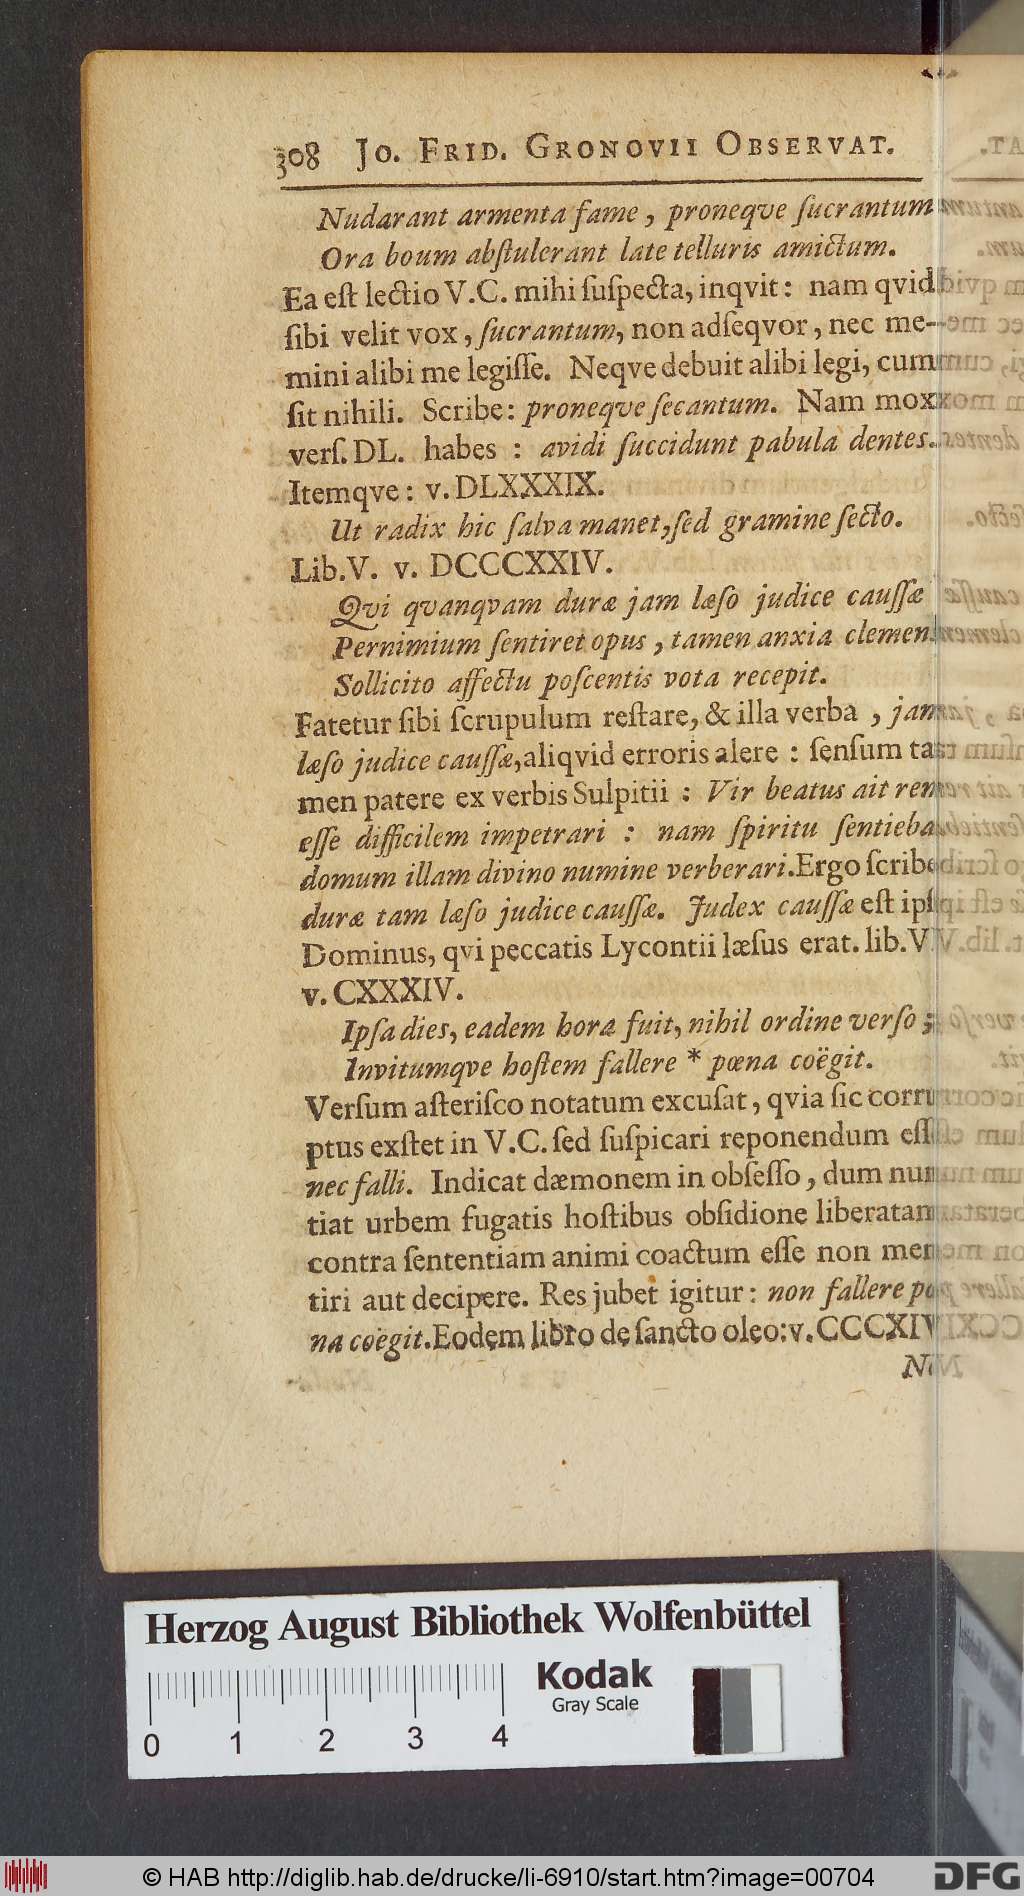 308 Jo. Frid. Gronovii Observat.
Nudarant armenta fame, proneqve ſucrantum
Ora boum abſtulerant late telluris amictum.
Ea eſt lectio V.C. mihi ſuſpecta, inqvit: nam qvid
ſibi velit vox, ſucrantum, non adſeqvor, nec me-
mini alibi me legiſſe. Neqve debuit alibi legi, cum
ſit nihili. Scribe: proneqve ſecantum. Nam mox
verſ. DL. habes : avidi ſuccidunt pabula dentes.
Itemqve: v. DLXXXIX.
Ut radix hic ſalva manet, ſed gramine ſecto.
Lib. V. v. DCCCXXIV.
Qvi qvanqvam duræ jam læſo judice cauſſæ
Pernimium ſentiret opus, tamen anxia clemens
Sollicito affectu poſcentis vota recepit.
Fatetur ſibi ſcrupulum reſtare, & illa verba, jam
læſo judice cauſſæ, aliqvid erroris alere : ſenſum ta
men patere ex verbis Sulpitii : Vir beatus ait rem
eſſe difficilem impetrari : nam ſpiritu ſentieba
domum illam divino numine verberari. Ergo ſcribe
duræ tam læſo judice cauſſæ. Judex cauſſæ eſt ipſ
Dominus, qvi peccatis Lycontii læſus erat. lib. V
v. CXXXIV.
Ipſa dies, eadem hora fuit, nihil ordine verſo ;
Invitumqve hoſtem fallere * pœna coëgit.
Verſum aſteriſco notatum excuſat, qvia ſic corru
ptus exſtet in V.C. ſed ſuſpicari reponendum eſſ
nec falli. Indicat dæmonem in obſeſſo, dum nun
tiat urbem fugatis hoſtibus obſidione liberatam
contra ſententiam animi coactum eſſe non men
tiri aut decipere. Res jubet igitur: non fallere pœ
na coëgit. Eodem libro de ſancto oleo: v. CCCXIV
Herzog August Bibliothek Wolfenbüttel
Kodak
Gray Scale
0 1 2 3 4
© HAB http://diglib.hab.de/drucke/li-6910/start.htm?image=00704
DFG